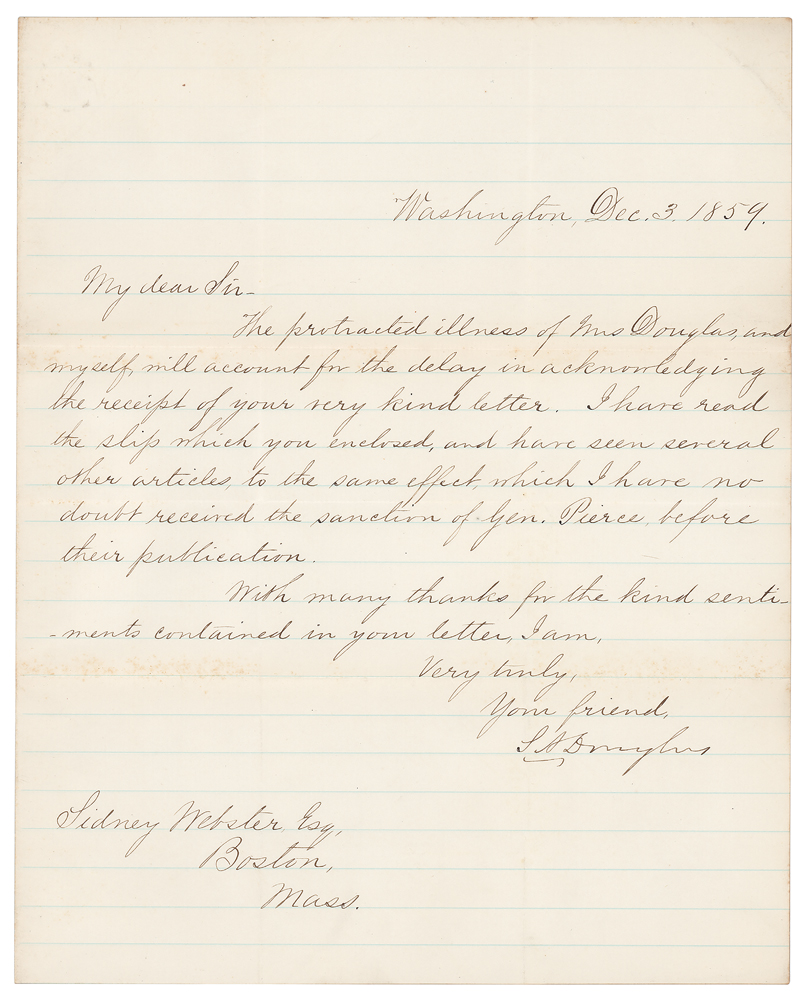 Washington, Dec. 3. 1859.
My dear Sir-
The protracted illness of Mrs Douglas, and
myself, will account for the delay in acknowledging
the receipt of your very kind letter. I have read
the slip which you enclosed, and have seen several
other articles, to the same effect, which I have no
doubt received the sanction of Gen. Pierce, before
their publication.
With many thanks for the kind senti-
-ments contained in your letter, I am,
Very truly,
Your friend,
S A Douglas
Sidney Webster, Esq,
Boston,
Mass.